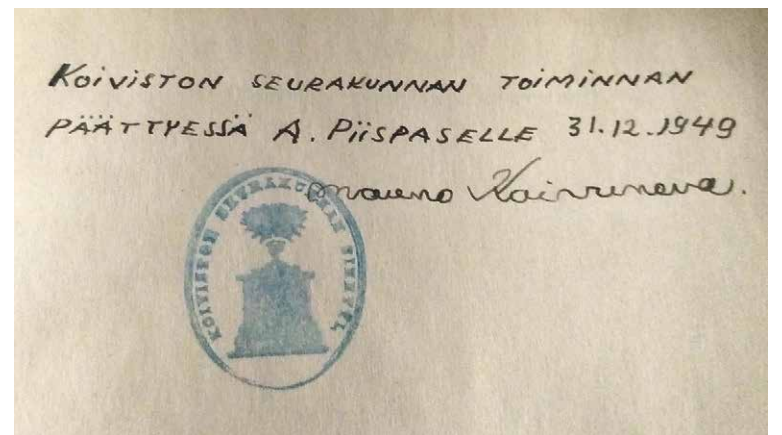 KOIVISTON SEURAKUNNAN TOIMINNAN
PÄÄTTYESSÄ A. PIISPASELLE 31.12.1949
Mauno Koivuneva.
KOIVISTON SEURAKUNNAN